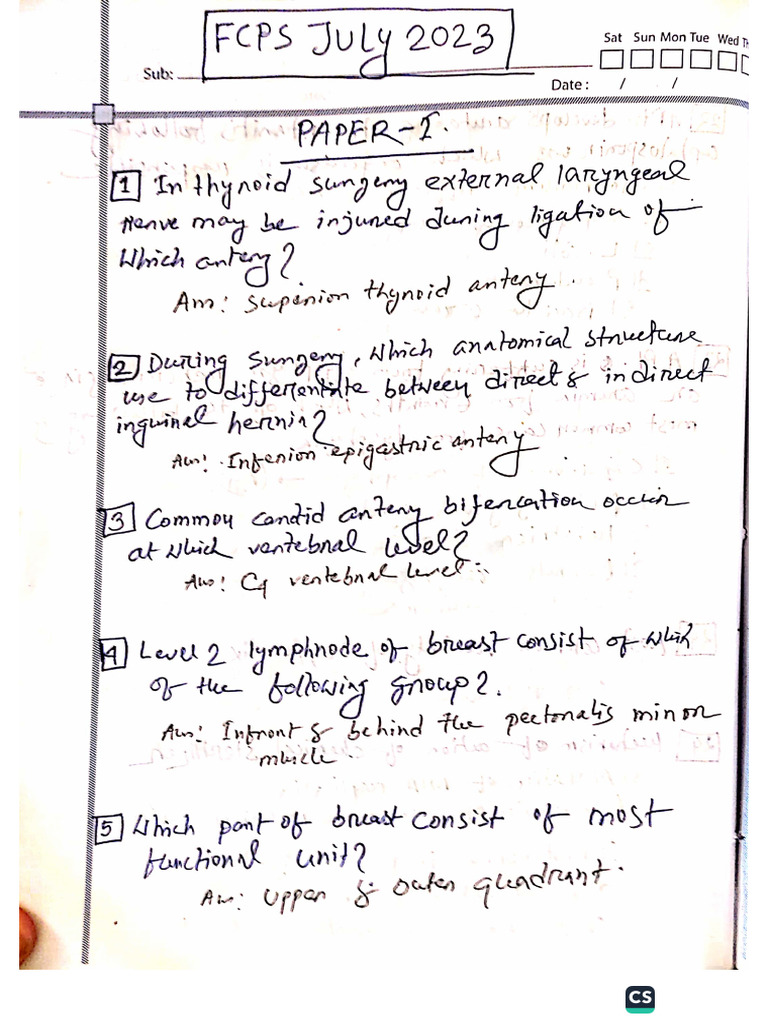 FCPS JULY 2023
Sub:
Sat Sun Mon Tue Wed Th
Date : / /
PAPER-I.
1 In thyroid surgery external laryngeal
nerve may be injured during ligation of
which artery?
Ans: superior thyroid artery.
2 During surgery, which anatomical structure
use to differentiate between direct & indirect
inguinal hernia?
Ans: Inferior epigastric artery
3 Common carotid artery bifercation occur
at which vertebral level?
Ans: C4 vertebral level.
4 Level 2 lymphnode of breast consist of which
of the following group?
Ans: Infront & behind the pectoralis minor
muscle.
5 Which part of breast consist of most
functional unit?
Ans: Upper & outer quadrant.
CS